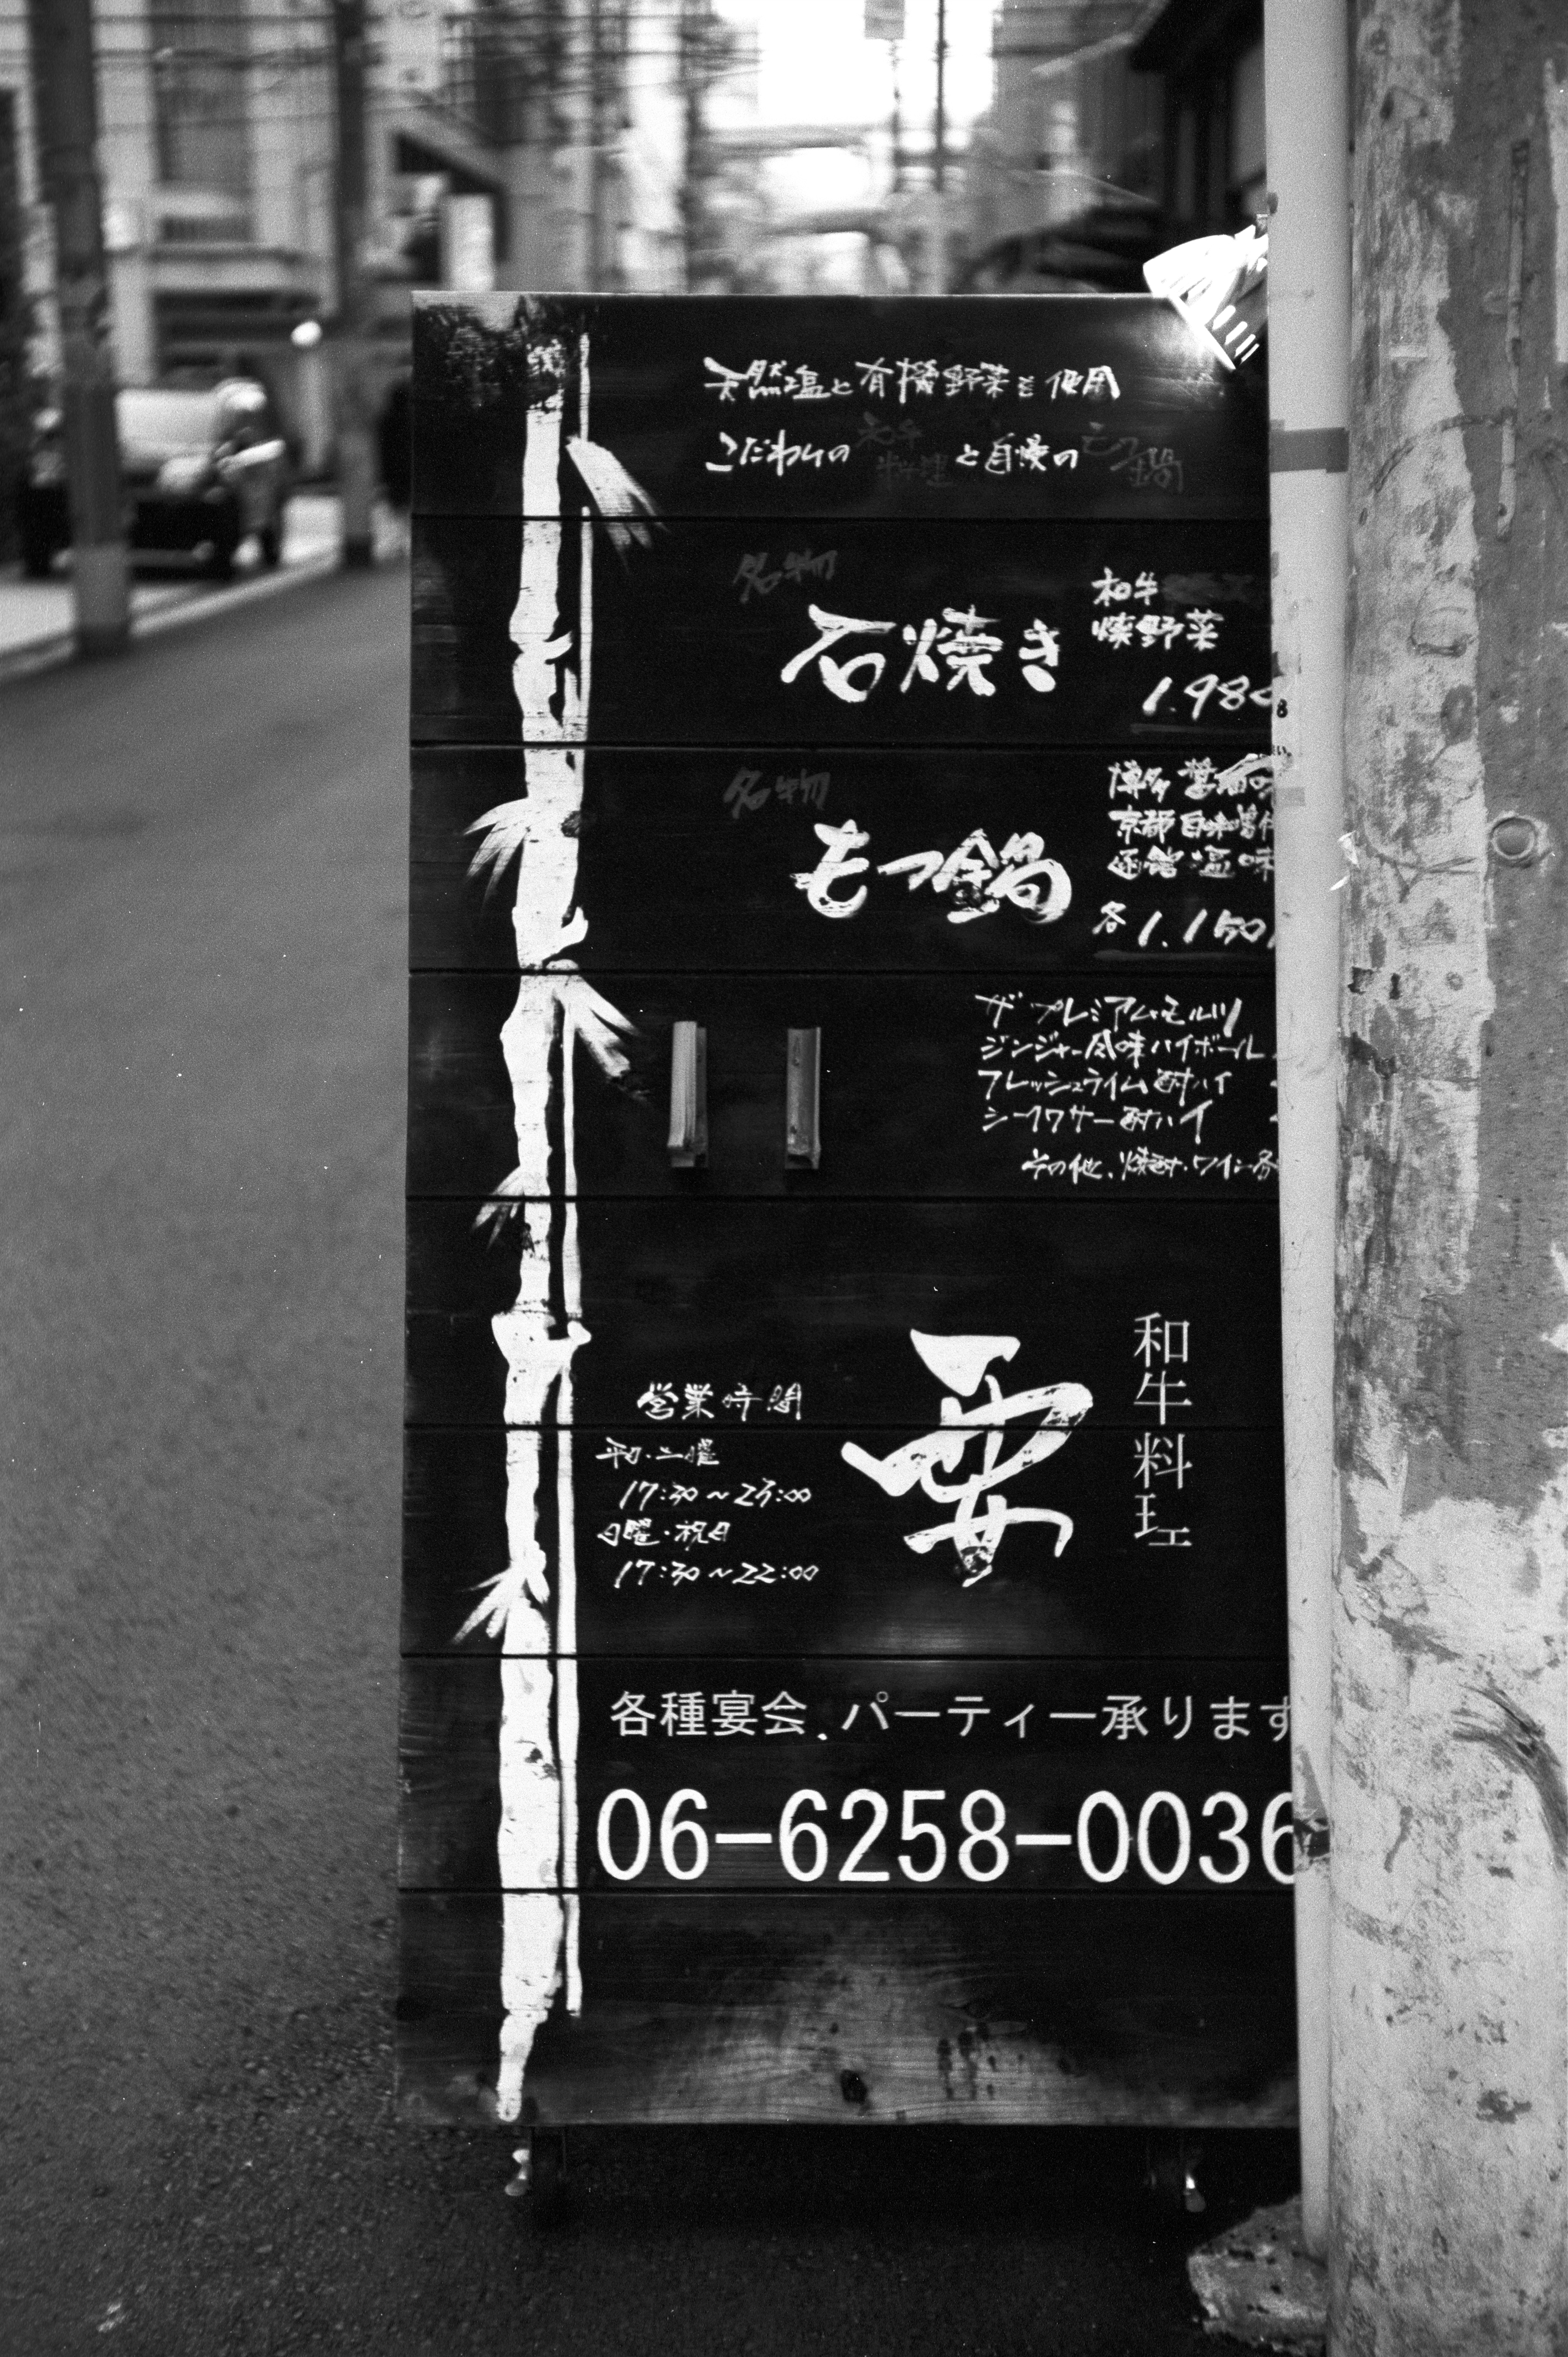 天然塩と有機野菜を使用
こだわりの 和牛料理 と自慢の もつ鍋
名物
石焼き
和牛
焼野菜
1.98
名物
もつ鍋
博多 醤油味
京都 白味噌仕
函館 塩味
各 1.150
ザ・プレミアム・モルツ
ジンジャー風味ハイボール
フレッシュライム酎ハイ
シークワサー酎ハイ
その他、焼酎・ワイン各
和牛料理
営業時間
平日・土曜
17:30〜23:00
日曜・祝日
17:30〜22:00
各種宴会、パーティー承ります
06-6258-0036